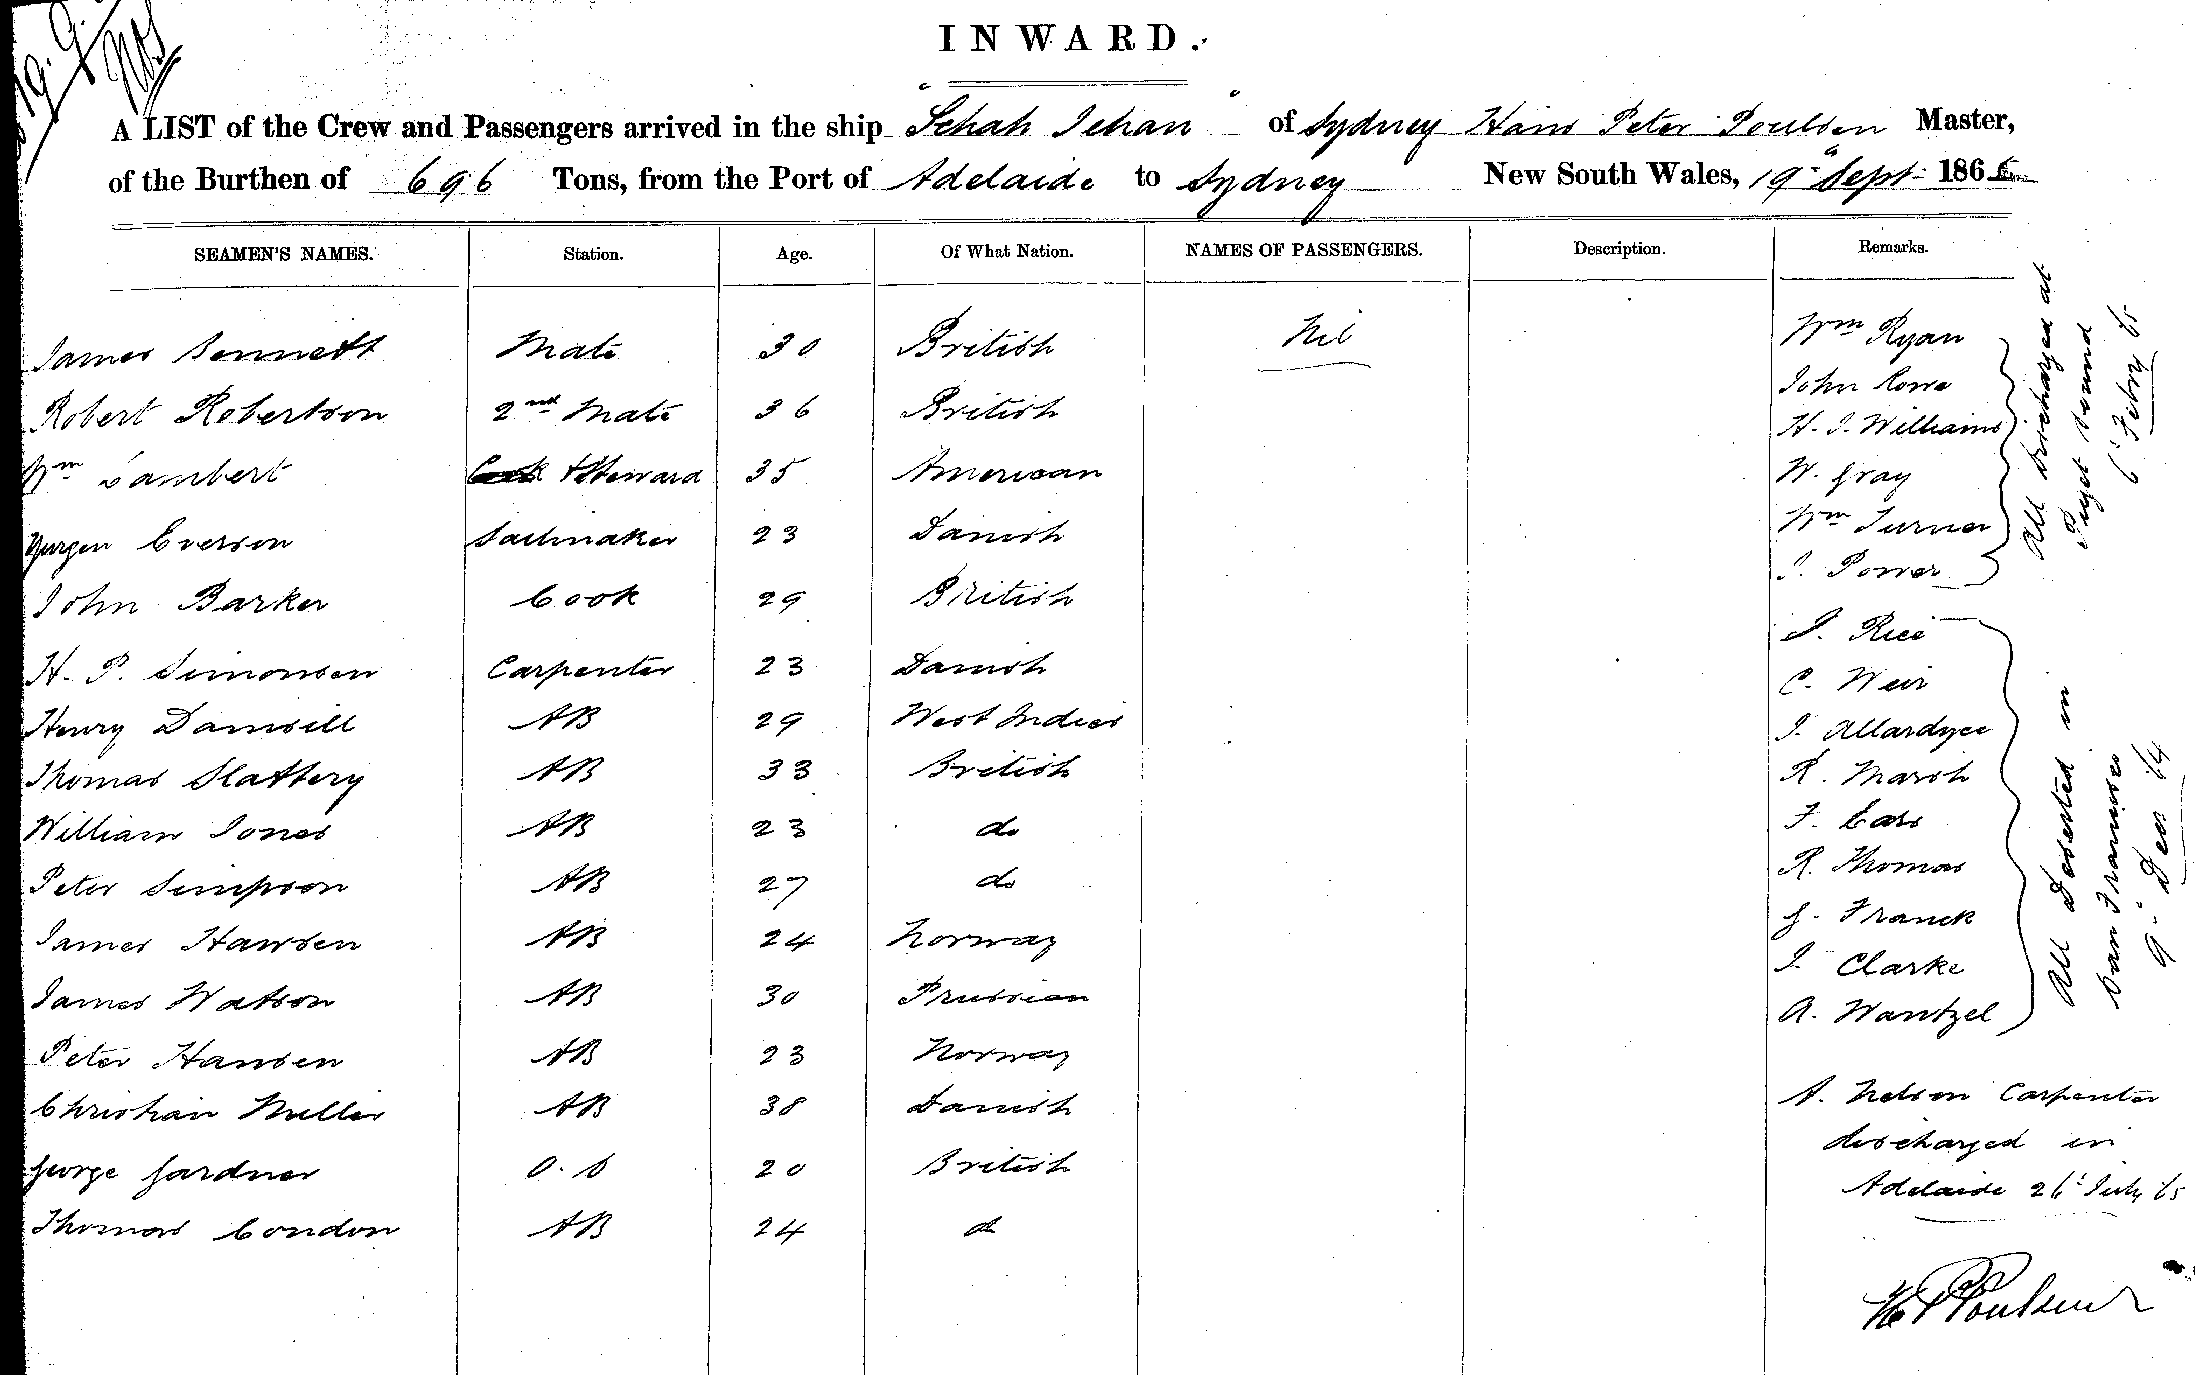 INWARD.
A LIST of the Crew and Passengers arrived in the ship "Schah Jehan" of Sydney Hans Peter Poulsen Master,
of the Burthen of 696 Tons, from the Port of Adelaide to Sydney New South Wales, 19th Sept 1865
SEAMEN'S NAMES. Station. Age. Of What Nation. NAMES OF PASSENGERS. Description. Remarks.
James Bennett Mate 30 British Nil Wm Ryan
John Rowe
Robert Robertson 2nd Mate 36 British H. J. Williams
Wm Lambert & Steward 35 American W. Gray
Yurgen Everson Sailmaker 23 Danish Wm Turner
John Barker Cook 29 British J. Power
All discharged at
Puget Sound
6' Febry 65
J. Rice
H. P. Simonsen Carpenter 23 Danish C. Weir
Henry Damsill AB 29 West Indies J. Allardyce
Thomas Slattery AB 33 British R. Marsh
William Jones AB 23 do F.
Peter Simpson AB 27 do R. Thomas
James Hansen AB 24 Norway G. Franck
J. Clarke
James Watson AB 30 Prussian A. Wantzel
All Deserted in
San Francisco
9" Decr 64
Peter Hansen AB 23 Norway
Christian Miller AB 38 Danish A. Nelson Carpenter
discharged in
George Gardner O.S 20 British Adelaide 26' July 65
Thomas Condon AB 24 do
H P Poulsen